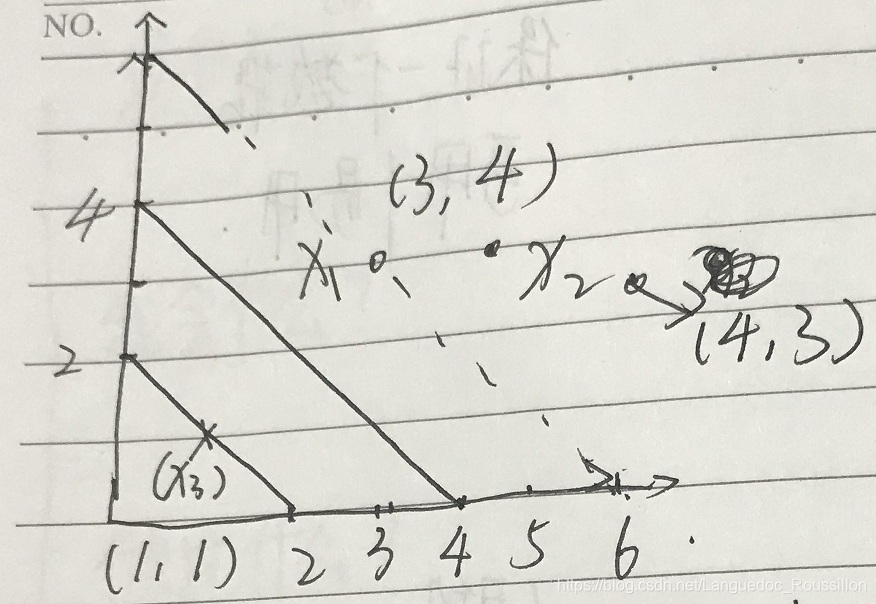 NO.
4
(3, 4)
x₁
x₂
(4, 3)
2
(x₃)
(1, 1) 2 3 4 5 6
https://blog.csdn.net/Languedoc_Roussillon